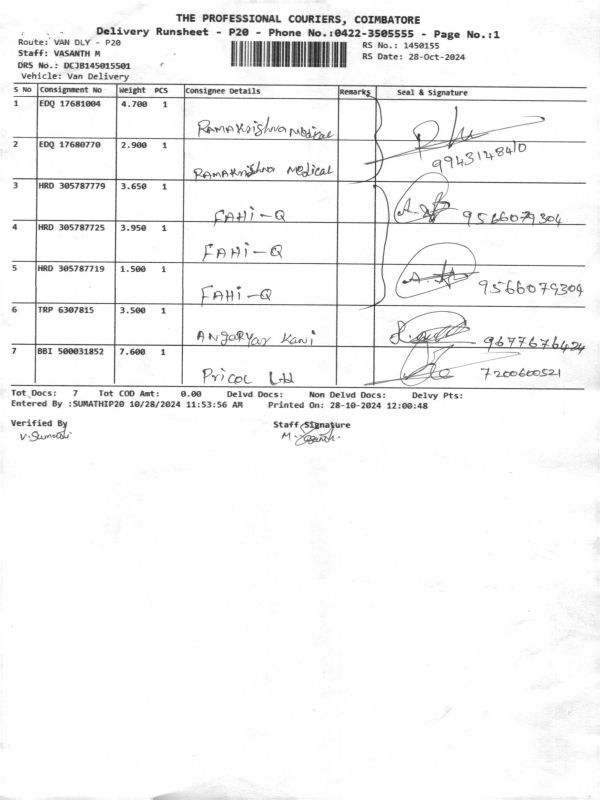 THE PROFESSIONAL COURIERS, COIMBATORE
Delivery Runsheet - P20 - Phone No.:0422-3505555 - Page No.:1
Route: VAN DLY - P20 RS No.: 1450155
Staff: VASANTH M RS Date: 28-Oct-2024
DRS No.: DCJB145015501
Vehicle: Van Delivery
S No Consignment No Weight PCS Consignee Details Remarks Seal & Signature
1 EDQ 17681004 4.700 1 Ramakrishna Medical
2 EDQ 17680770 2.900 1 Ramakrishna Medical 9943148410
3 HRD 305787779 3.650 1 FAHi-Q 9566079304
4 HRD 305787725 3.950 1 FAHi-Q
5 HRD 305787719 1.500 1 FAHi-Q 9566079304
6 TRP 6307815 3.500 1 Angaryar Kani 9677676424
7 BBI 500031852 7.600 1 Pricol Ltd 7200600521
Tot Docs: 7 Tot COD Amt: 0.00 Delvd Docs: Non Delvd Docs: Delvy Pts:
Entered By :SUMATHIP20 10/28/2024 11:53:56 AM Printed On: 28-10-2024 12:00:48
Verified By Staff Signature
V. Sumathi M. Vasanth.